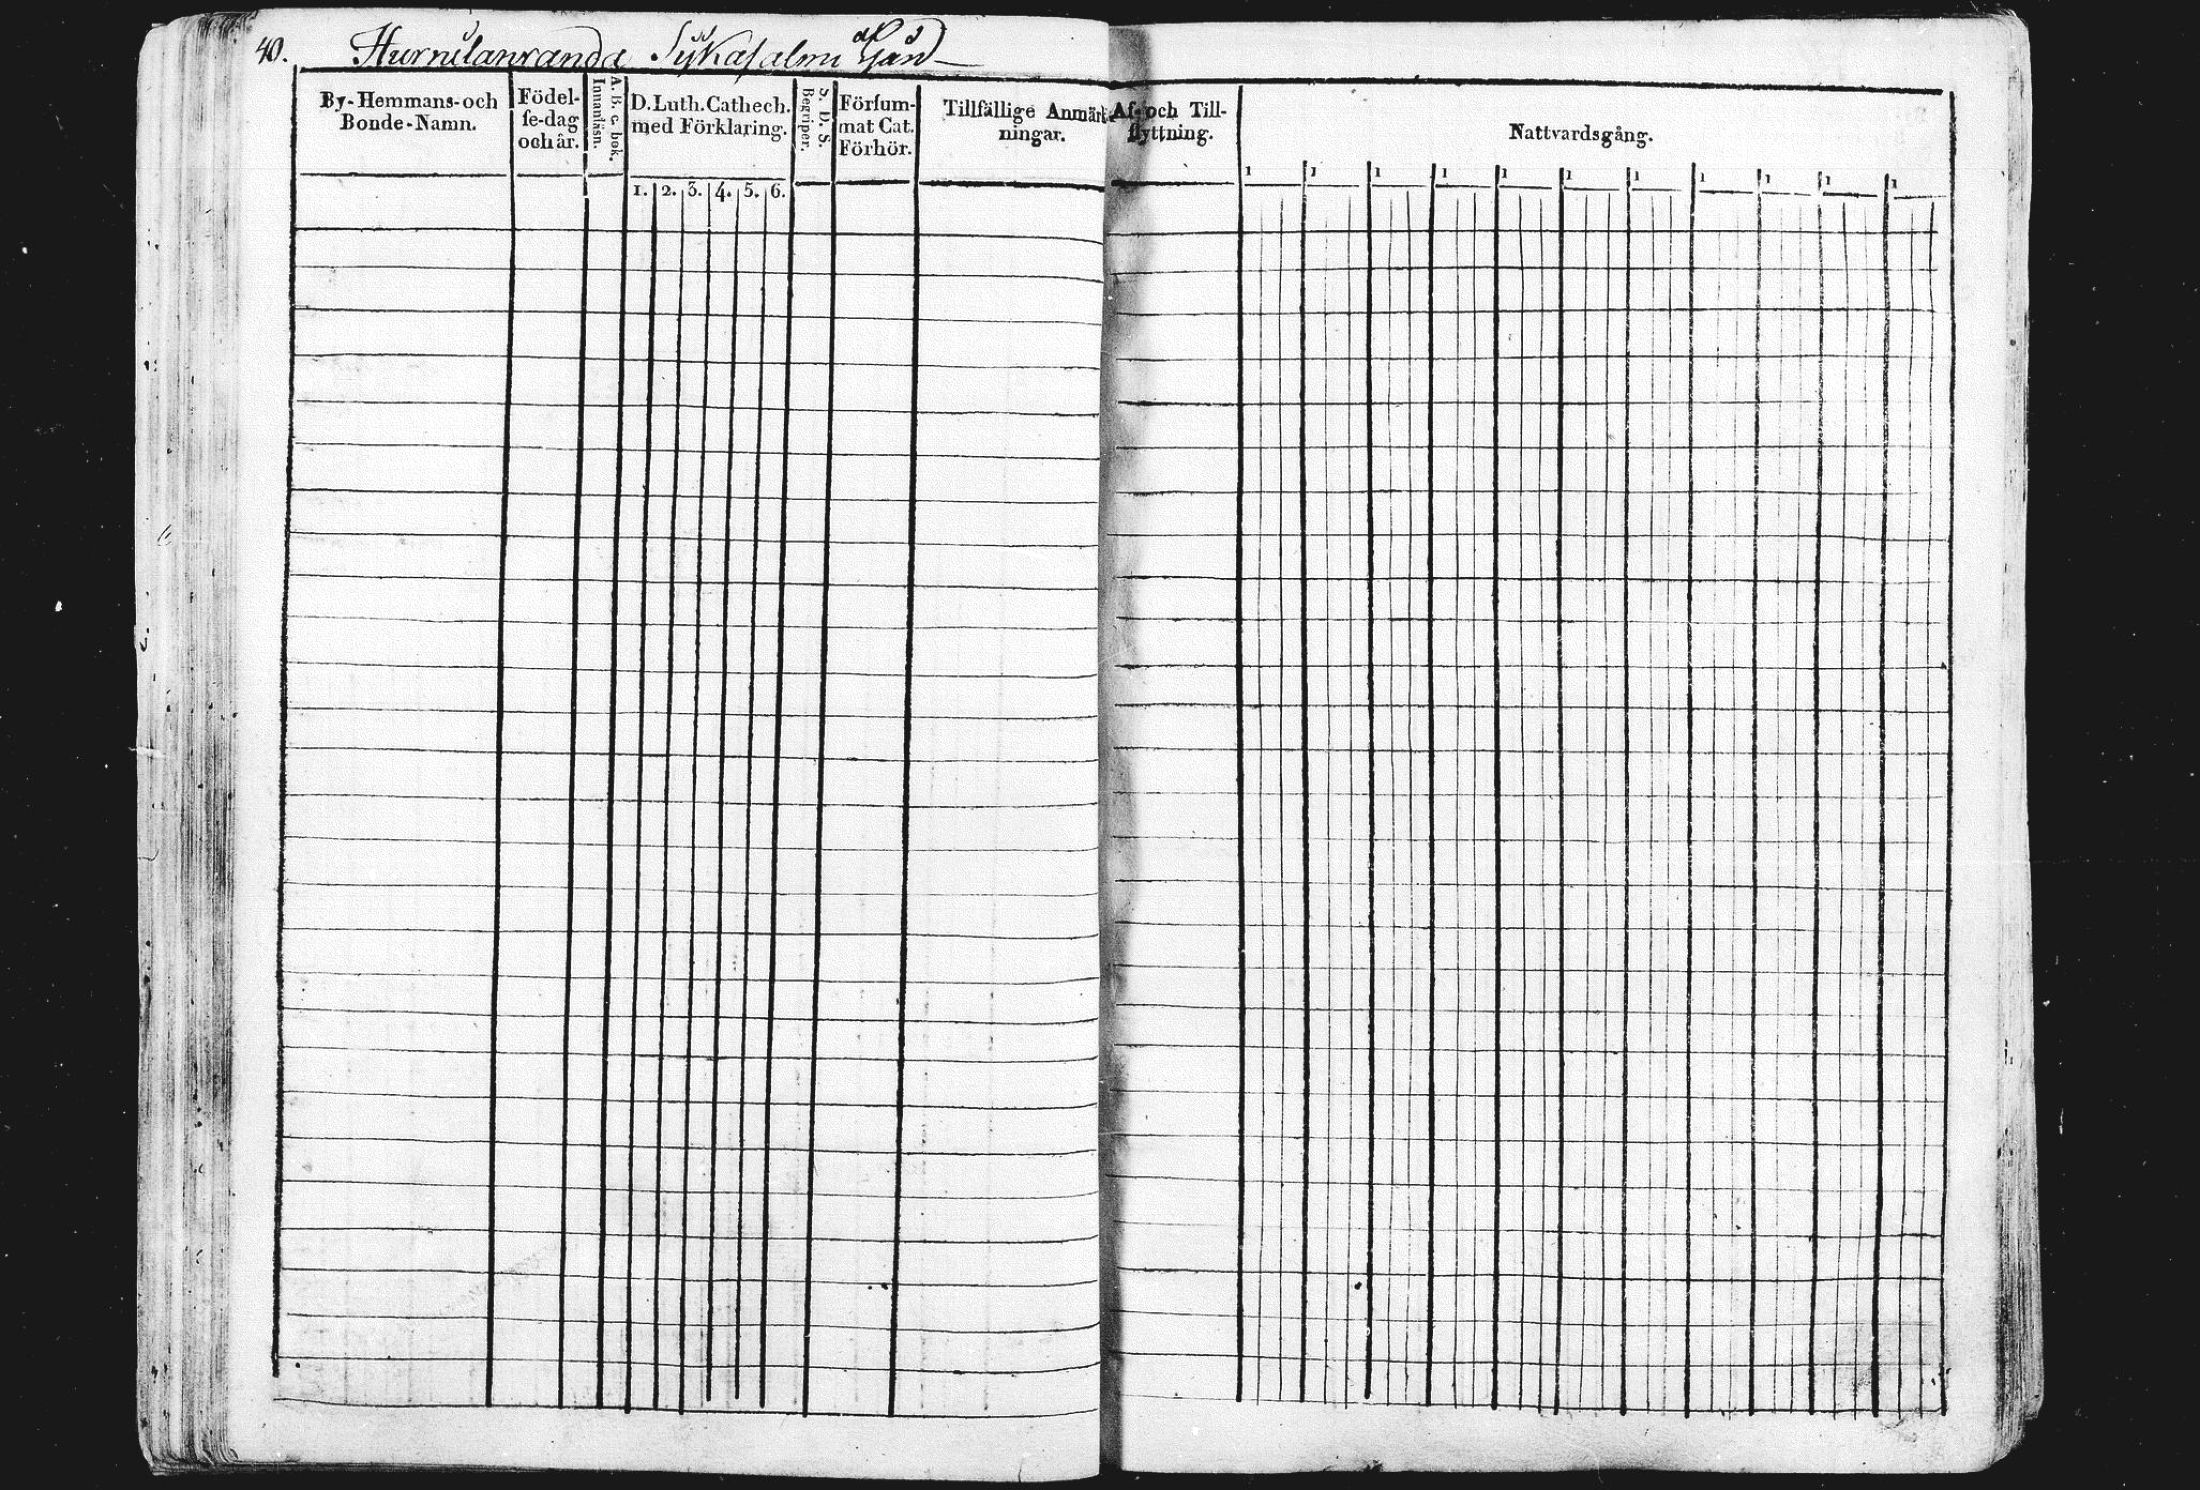 40. Hurnulanranda Sykäsalmi Gård
By-Hemmans-och
Bonde-Namn.
Födel-
se-dag
och år.
A. B. c. bok.
Innanläsn.
D. Luth. Cathech.
med Förklaring.
1. 2. 3. 4. 5. 6.
S. D. S.
Begriper.
Försum-
mat Cat.
Förhör.
Tillfällige Anmärk-
ningar.
Af- och Till-
flyttning.
Nattvardsgång.
1 1 1 1 1 1 1 1 1 1 1